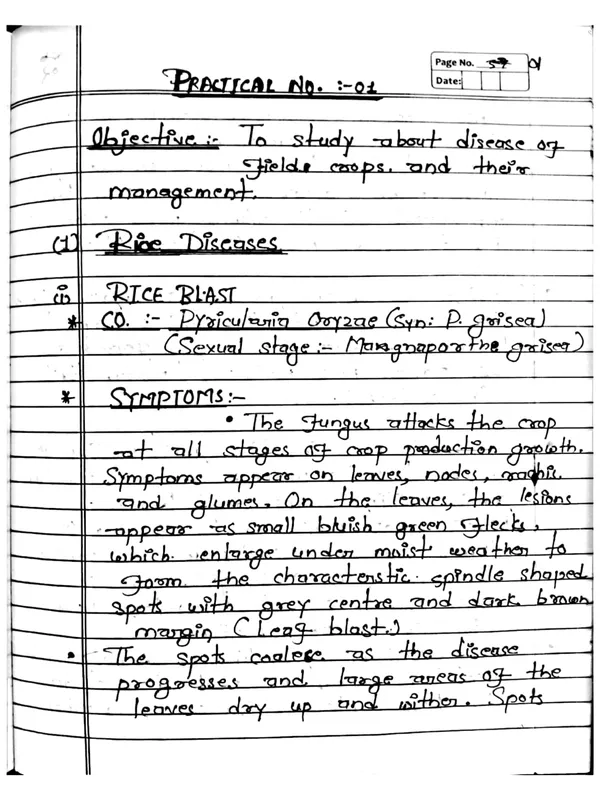 Page No. 57 01
Date:
PRACTICAL NO. :-01
Objective:- To study about disease of
field crops. and their
management.
(1) Rice Diseases
(i) RICE BLAST
* CO. :- Pyricularia Oryzae (Syn: P. grisea)
(Sexual stage:- Magnaporthe grisea)
* SYMPTOMS:-
• The fungus attacks the crop
at all stages of crop production growth.
Symptoms appear on leaves, nodes, rachis
and glumes. On the leaves, the lesions
appear as small bluish green flecks,
which enlarge under moist weather to
form the characterstic spindle shaped
spots with grey centre and dark brown
margin (Leaf blast.)
• The spots coalesc as the disease
progresses and large areas of the
leaves dry up and wither. Spots